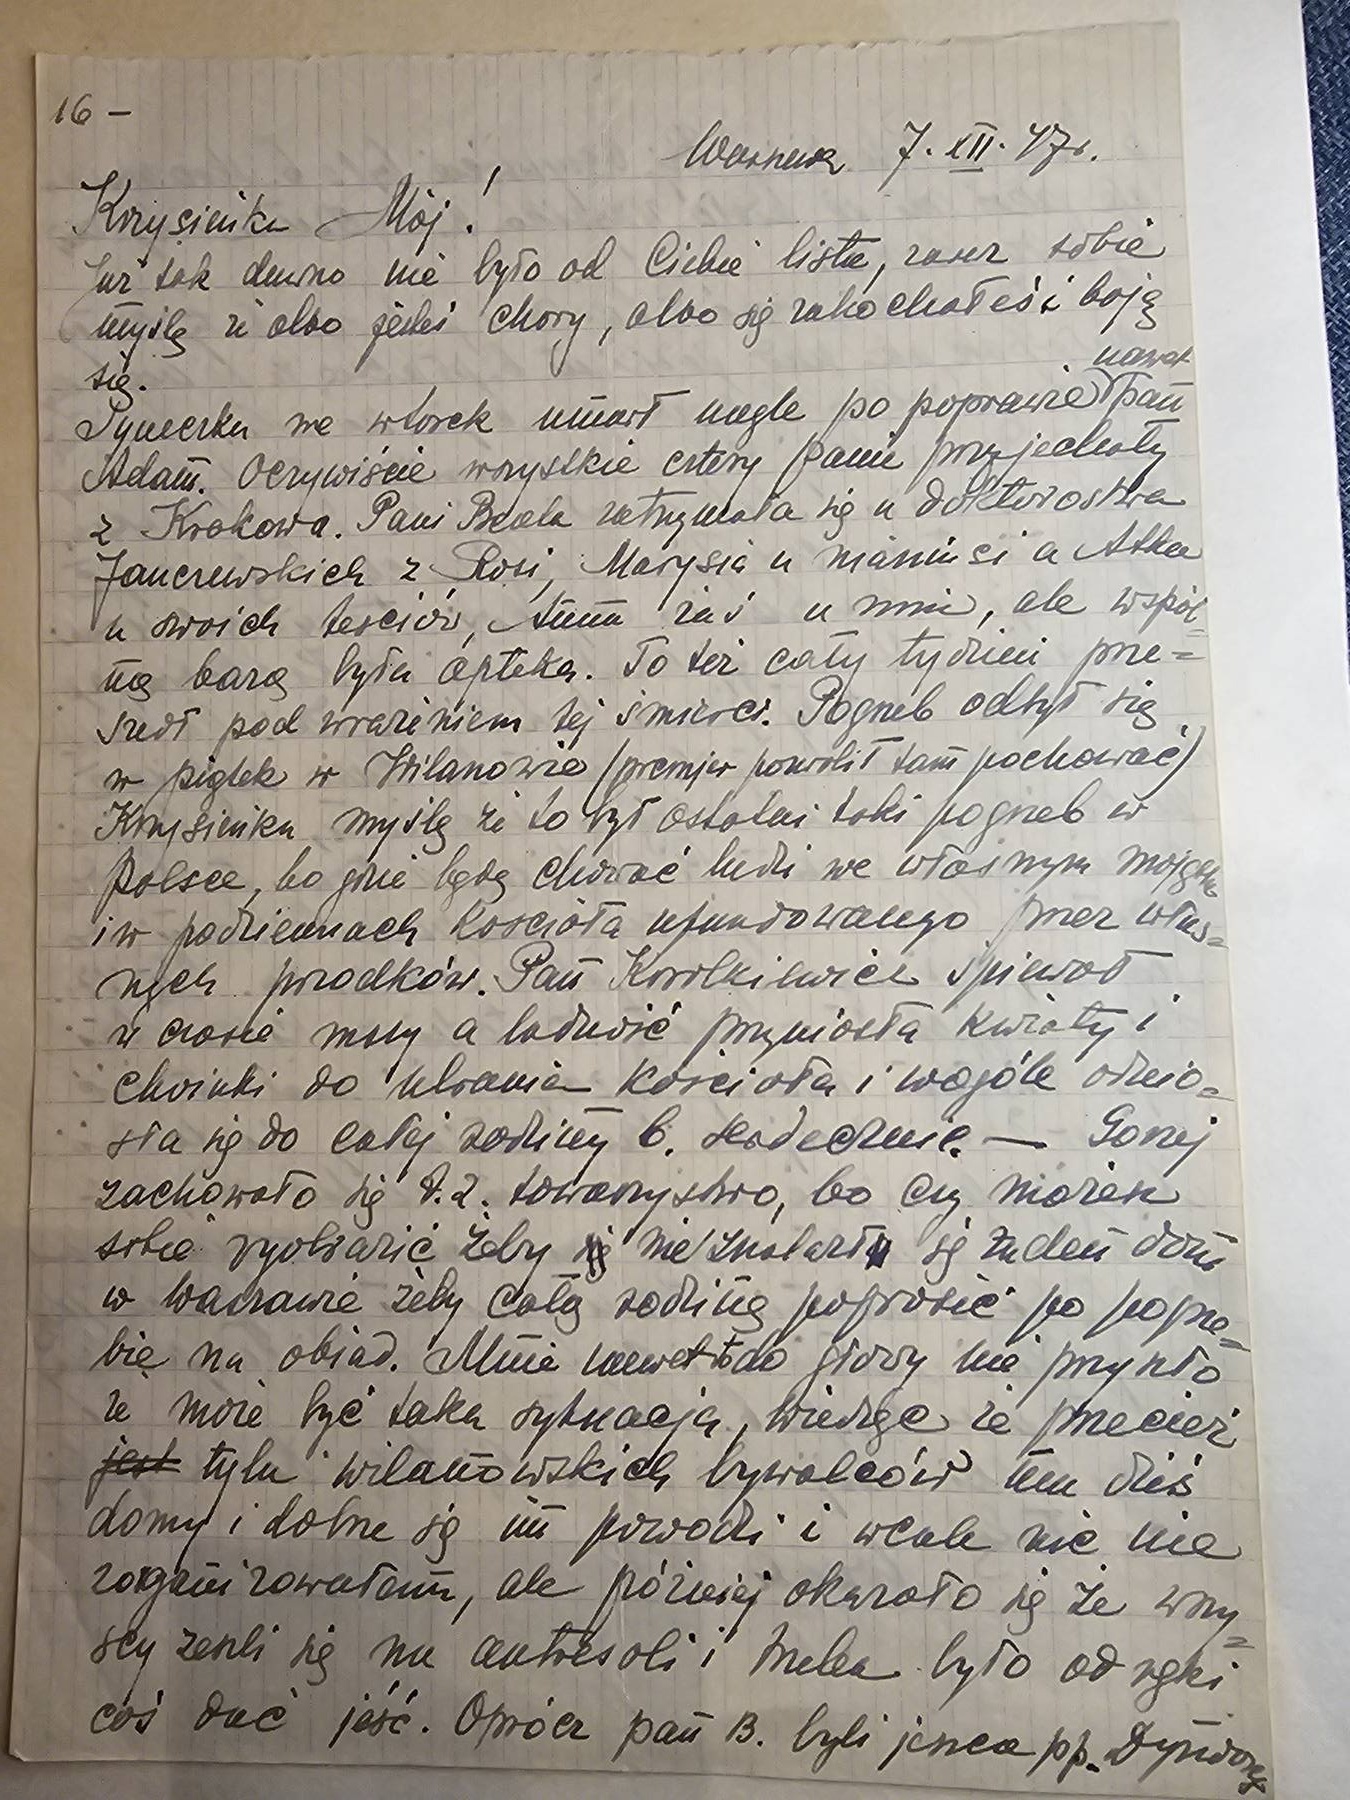 16 –
Warszawa 7. XII. 47 r.
Krzysieńku Mój!
Już tak dawno nie było od Ciebie listu, zaraz sobie
myślę że albo jesteś chory, albo się zakochałeś i boję
się.
nawet
Syneczku we wtorek umarł nagle po poprawie pan
Adam. Oczywiście wszystkie cztery panie przyjechały
z Krakowa. Pani Beata zatrzymała się u doktorostwa
Janczewskich z Rosi, Marysia u mamusi a Atka
u swoich teściów, Anna zaś u mnie, ale wspól=
ną bazą była apteka. To też cały tydzień prze=
szedł pod wrażeniem tej śmierci. Pogrzeb odbył się
w piątek w Wilanowie (premjer pozwolił tam pochować)
Krzysieńku myślę że to był ostatni taki pogrzeb w
Polsce, bo gdzie będą chować ludzi we własnym majątku
i w podziemiach kościoła ufundowanego przez włas=
nych przodków. Pan Korolkiewicz śpiewał
w czasie mszy a ludność przyniosła kwiaty i
choinki do ubrania kościoła i wogóle odnio=
sła się do całej rodziny b. serdecznie. — Gorzej
zachowało się t.z. towarzystwo, bo czy możesz
sobie wyobrazić żeby nie znalazł się żaden dom
w Warszawie żeby całą rodzinę poprosić po pogrze=
bie na obiad. Mnie nawet to do głowy nie przyszło
że może być taka sytuacja, wiedząc że przecież
jest tylu wilanowskich bywalców ma dziś
domy i dobrze się im powodzi i wcale nic nie
zorganizowałam, ale później okazało się że wszy=
scy zeszli się na antresoli i trzeba było od ręki
coś dać jeść. Oprócz pań B. byli jeszcze pp.